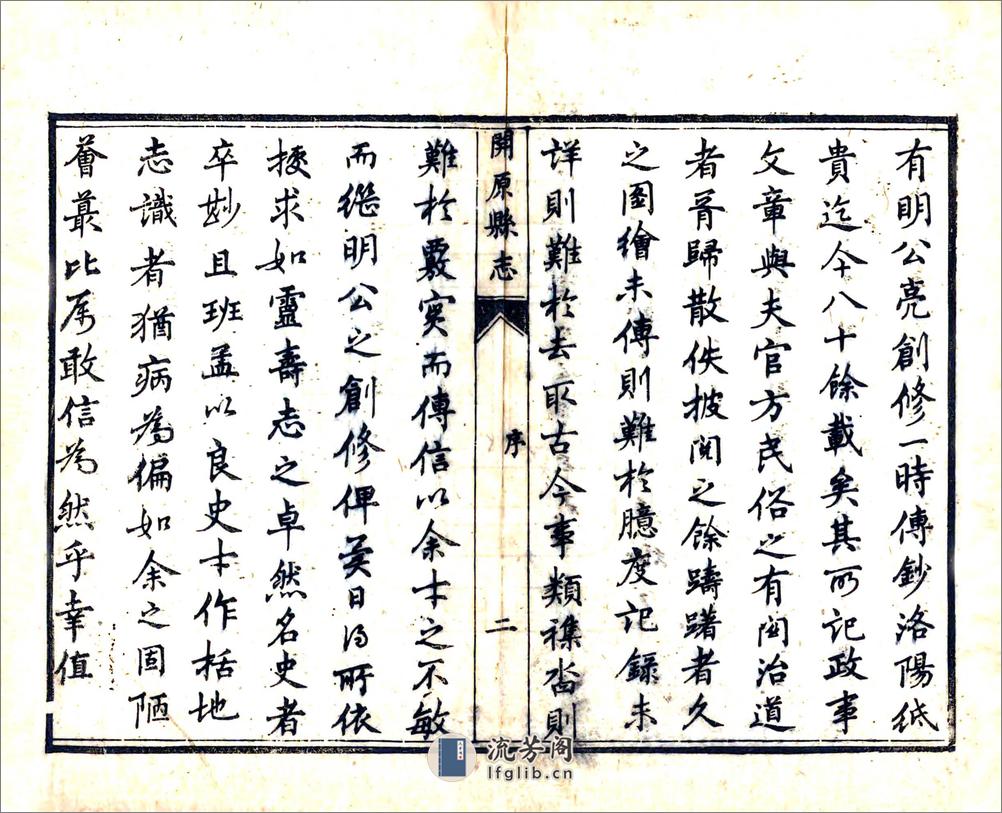 有明公亮創修一時傳鈔洛陽紙
貴迄今八十餘載矣其所記政事
文章與夫官方民俗之有関治道
者胥歸散佚披閱之餘躊躇者久
之圖繪未傳則難於臆度記錄未
詳則難於去取古今事類襍沓則
開原縣志
序
二
難於覈實而傳信以余才之不敏
而繼明公之創修俾異日得所依
據求如靈壽志之卓然名史者
卒尠且班孟以良史才作括地
志識者猶病為偏如余之固陋
薈蕞比厲敢信為然乎幸值
流芳阁
lfglib.cn